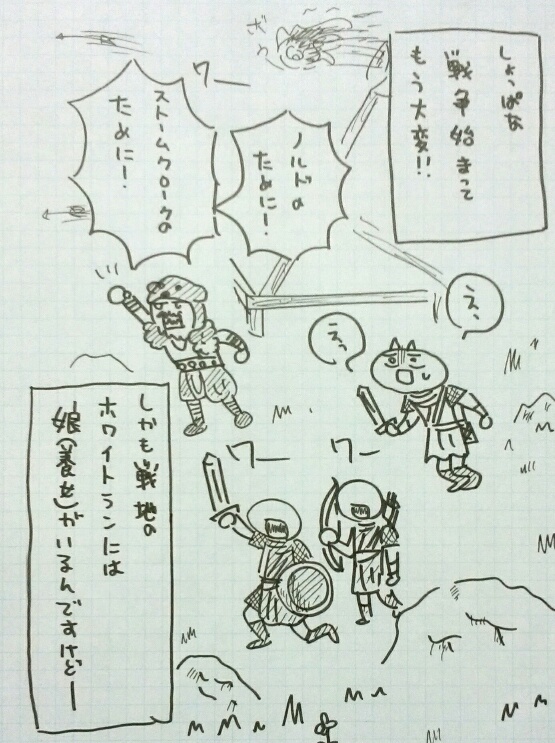 しょっぱな
戦争始まって
もう大変!!
ざっ
ワー
ノルドの
ために!
ストームクロークの
ために!
え、
えっ
ワー
ワー
しかも戦地の
ホワイトランには
娘(養女)がいるんですけどー